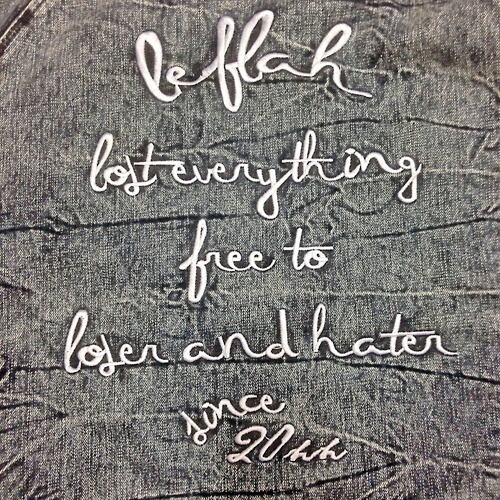 leflah
lost everything
free to
loser and hater
since
20hh